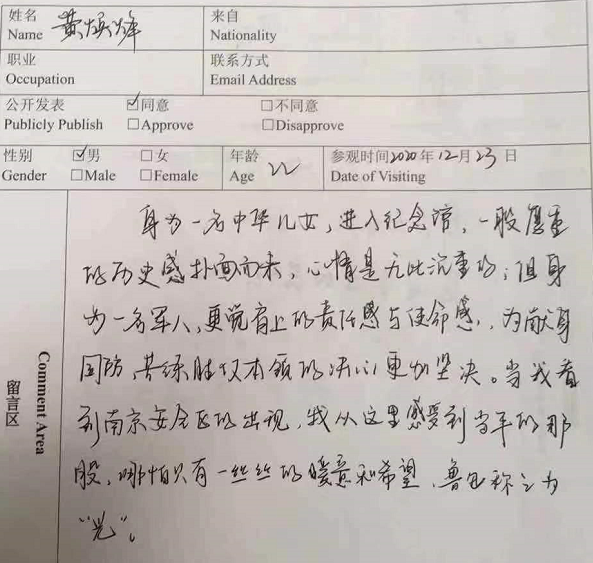 姓名 黄焕烽 来自
Name Nationality
职业 联系方式
Occupation Email Address
公开发表 ☑同意 □不同意
Publicly Publish □Approve □Disapprove
性别 ☑男 □女 年龄 22 参观时间2020年12月23日
Gender □Male □Female Age Date of Visiting
身为一名中华儿女,进入纪念馆,一股厚重
的历史感扑面而来,心情是无比沉重的;但身
为一名军人,更觉肩上的责任感与使命感,为献身
国防,苦练胜仗本领的决心更加坚决。当我看
到南京安全区的出现,我从这里感受到当年的那
股,哪怕只有一丝丝的暖意和希望,鲁迅称之为
“光”。
留言区
Comment Area